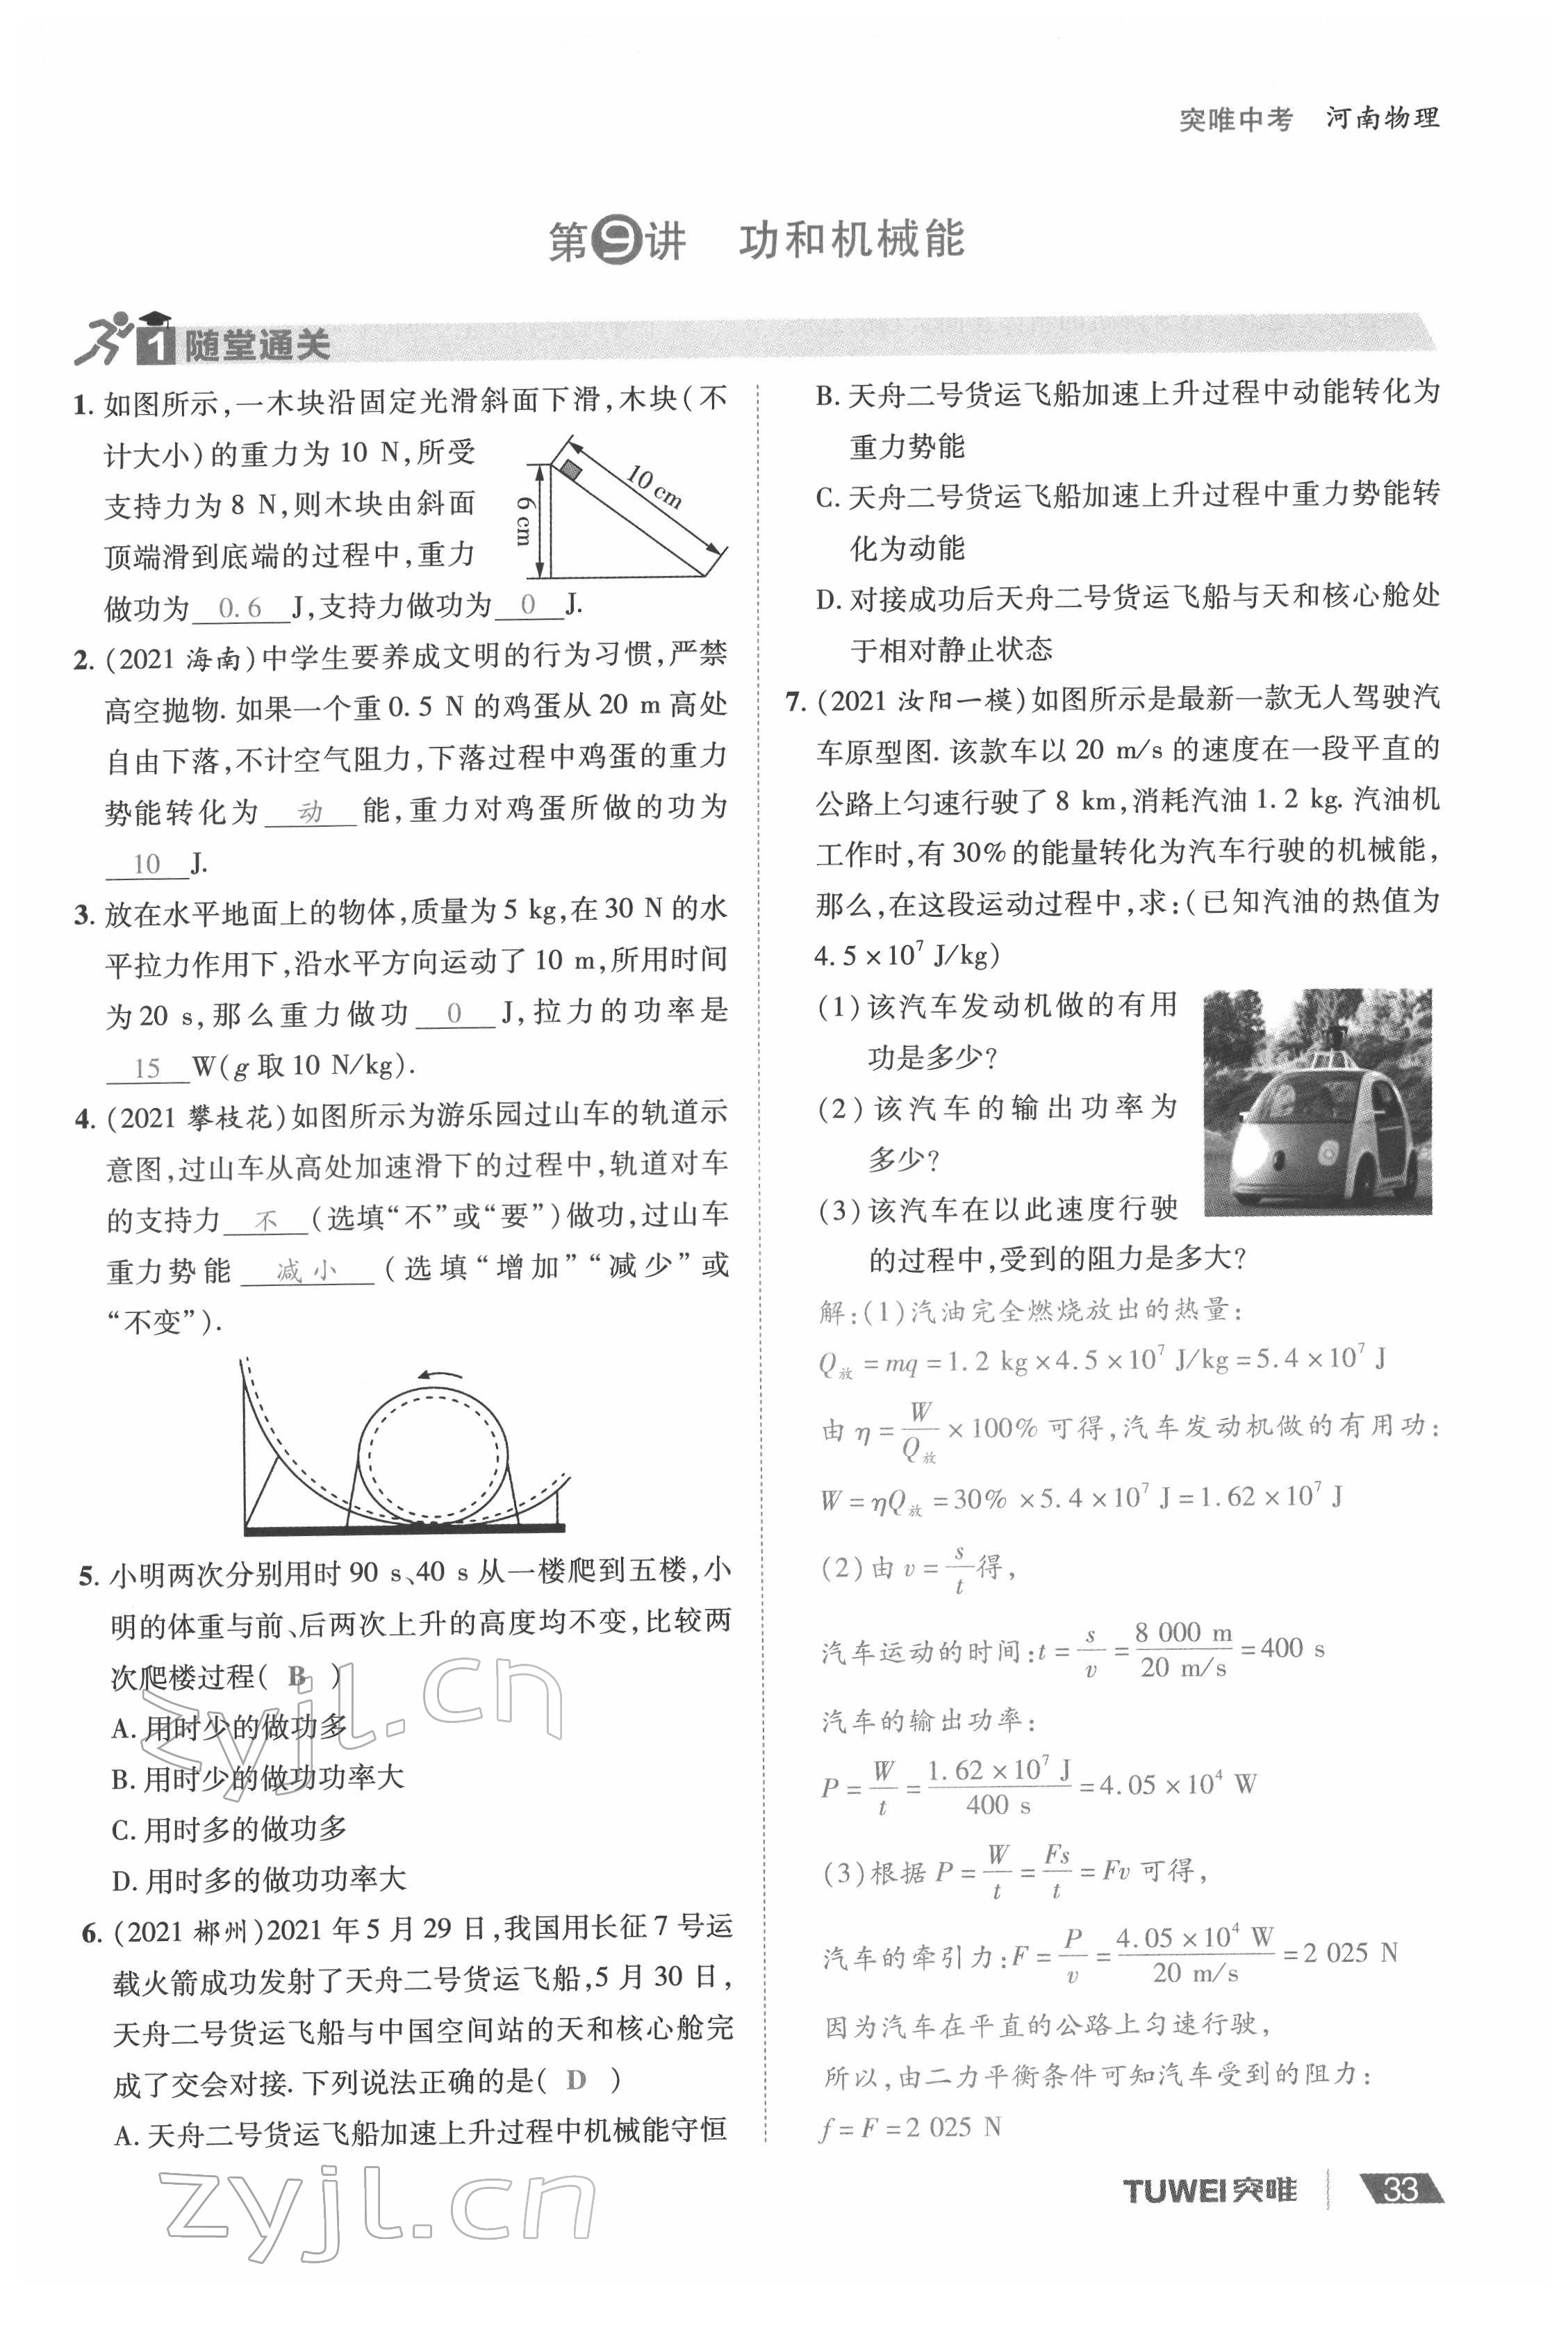 突唯中考 河南物理
第9讲 功和机械能
1 随堂通关
1. 如图所示,一木块沿固定光滑斜面下滑,木块(不
计大小)的重力为 10 N,所受
支持力为 8 N,则木块由斜面
顶端滑到底端的过程中,重力
做功为 0.6 J,支持力做功为 0 J.
10 cm
6 cm
2. (2021 海南)中学生要养成文明的行为习惯,严禁
高空抛物. 如果一个重 0.5 N 的鸡蛋从 20 m 高处
自由下落,不计空气阻力,下落过程中鸡蛋的重力
势能转化为 动 能,重力对鸡蛋所做的功为
10 J.
3. 放在水平地面上的物体,质量为 5 kg,在 30 N 的水
平拉力作用下,沿水平方向运动了 10 m,所用时间
为 20 s,那么重力做功 0 J,拉力的功率是
15 W(g 取 10 N/kg).
4. (2021 攀枝花)如图所示为游乐园过山车的轨道示
意图,过山车从高处加速滑下的过程中,轨道对车
的支持力 不 (选填“不”或“要”)做功,过山车
重力势能 减小 (选填“增加”“减少”或
“不变”).
5. 小明两次分别用时 90 s、40 s 从一楼爬到五楼,小
明的体重与前、后两次上升的高度均不变,比较两
次爬楼过程( B )
A. 用时少的做功多
B. 用时少的做功功率大
C. 用时多的做功多
D. 用时多的做功功率大
6. (2021 郴州)2021 年 5 月 29 日,我国用长征 7 号运
载火箭成功发射了天舟二号货运飞船,5 月 30 日,
天舟二号货运飞船与中国空间站的天和核心舱完
成了交会对接. 下列说法正确的是( D )
A. 天舟二号货运飞船加速上升过程中机械能守恒
B. 天舟二号货运飞船加速上升过程中动能转化为
重力势能
C. 天舟二号货运飞船加速上升过程中重力势能转
化为动能
D. 对接成功后天舟二号货运飞船与天和核心舱处
于相对静止状态
7. (2021 汝阳一模)如图所示是最新一款无人驾驶汽
车原型图. 该款车以 20 m/s 的速度在一段平直的
公路上匀速行驶了 8 km,消耗汽油 1.2 kg. 汽油机
工作时,有 30%的能量转化为汽车行驶的机械能,
那么,在这段运动过程中,求:(已知汽油的热值为
4.5×10⁷ J/kg)
(1)该汽车发动机做的有用
功是多少?
(2)该汽车的输出功率为
多少?
(3)该汽车在以此速度行驶
的过程中,受到的阻力是多大?
解:(1)汽油完全燃烧放出的热量:
Q放 = mq = 1.2 kg×4.5×10⁷ J/kg = 5.4×10⁷ J
由 η = W/Q放 ×100% 可得,汽车发动机做的有用功:
W = ηQ放 = 30% ×5.4×10⁷ J = 1.62×10⁷ J
(2)由 v = s/t 得,
汽车运动的时间:t = s/v = 8 000 m/20 m/s = 400 s
汽车的输出功率:
P = W/t = 1.62×10⁷ J/400 s = 4.05×10⁴ W
(3)根据 P = W/t = Fs/t = Fv 可得,
汽车的牵引力:F = P/v = 4.05×10⁴ W/20 m/s = 2 025 N
因为汽车在平直的公路上匀速行驶,
所以,由二力平衡条件可知汽车受到的阻力:
f = F = 2 025 N
zyjl.cn
zyjl.cn
TUWEI突唯 33